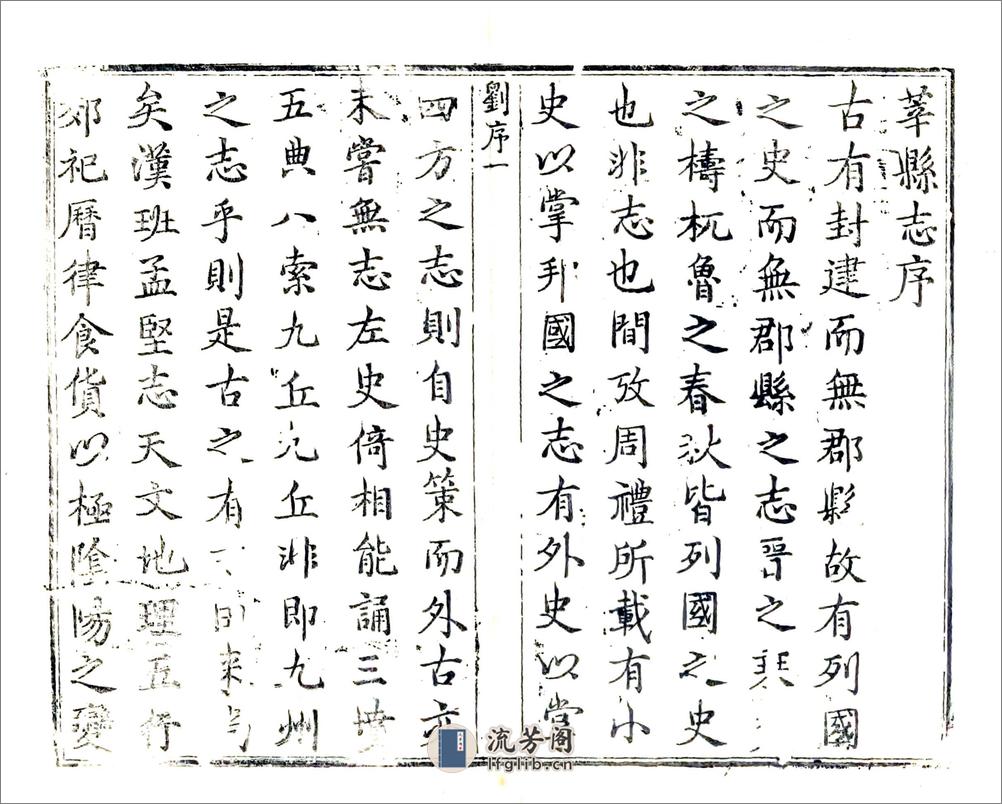 莘縣志序
古有封建而無郡縣故有列國
之史而無郡縣之志晉之
之檮杌魯之春秋皆列國之史
也非志也間攷周禮所載有小
史以掌邦國之志有外史以掌
劉序一
四方之志則自史策而外古亦
未嘗無志左史倚相能誦三墳
五典八索九丘九丘非即九州
之志乎則是古之有
矣漢班孟堅志天文地理五行
郊祀曆律食貨以極陰陽之變
流芳阁
lfglib.cn